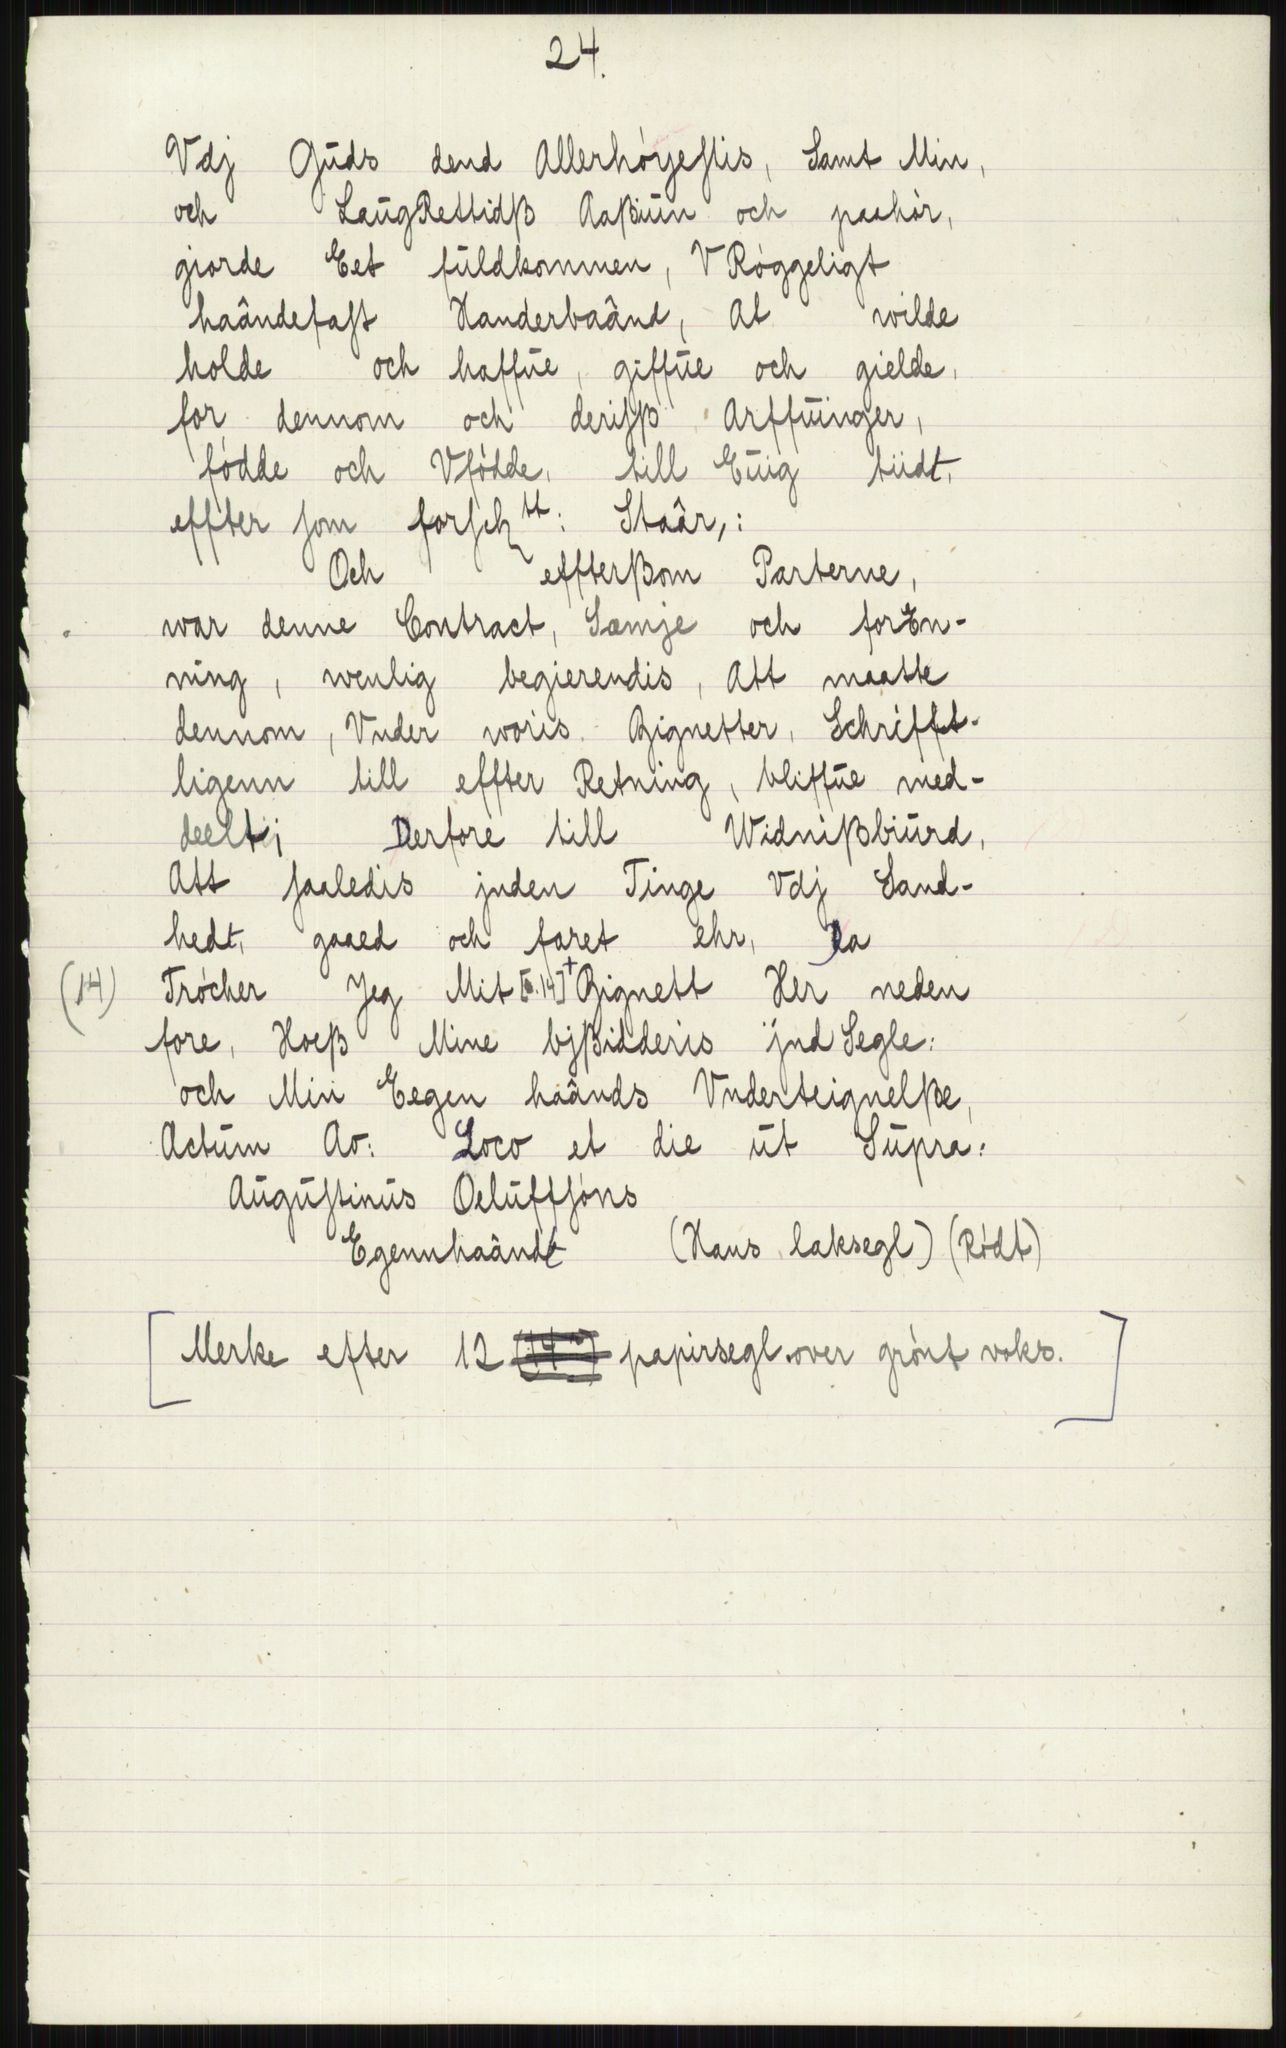 24.
Vdj Gúds dend Allerhóyestis, Samt Min,
och LaúgRettidß Aaßiún och paahór,
giorde Eet fúldkommen, V Róggeligt
haåndefast Handerbaånd, At wilde
holde och haffúe, giffúe och gielde,
for dennom och derisß Arffúinger,
fódde och Vfódde, till Eúig tiidt,
effter som forschtt: Staår,:
Och effterßom Parterne,
war denne Contract, Samje och forEn-
ning, wenlig begierendis, Att maatte
dennom, Vnder woris Zignetter, Schrifft-
ligenn till effter Retning, bliffúe med-
deelt; Derfore till Widnißbiúrd,
Att saaledis jnden Tinge Vdj Sand-
hedt, gaaed och faret ehr, Da
(14) Trócher Jeg Mit [s.14]+ Zignett Her neden
fore, Hoeß Mine bjßidderis jnd Segle:
och Min Eegen haånds Vnderteignelße,
Actúm Ao: Loco et die út Súpra:
Aúgústinús Oelúffsóns
Egennhaåndt (Hans laksegl) (Rødt)
[Merke efter 12 papirsegl over grønt voks.]